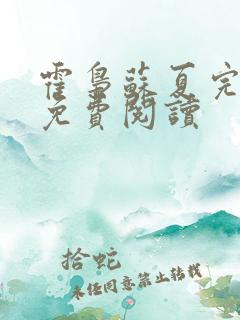 霍梟蘇夏完
免費閱讀
拾蛇
未经同意禁止转载